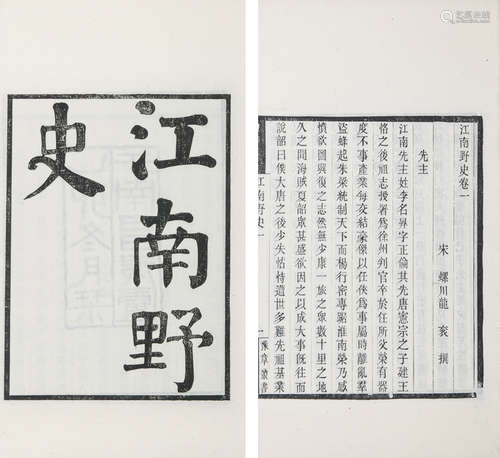 江南野
史
江南野史卷一
宋 螺川龍 袞 撰
先主
江南先主姓李名昪字正倫其先唐憲宗之子建王
恪之後祖志授署為徐州判官卒於任所父榮有器
度不事產業每交結豪傑以任俠為事屬時離亂羣
盜蜂起朱梁統制天下而楊行密專踞淮南榮乃感
憤欲圖興復之志然無少康一旅之眾數十里之地
久之間海賊夏韶眾甚盛欲因之以成大事既往而
說韶曰僕大唐之後少失怙恃遭世多難先祖基業
江南野史一
一
豫章叢書